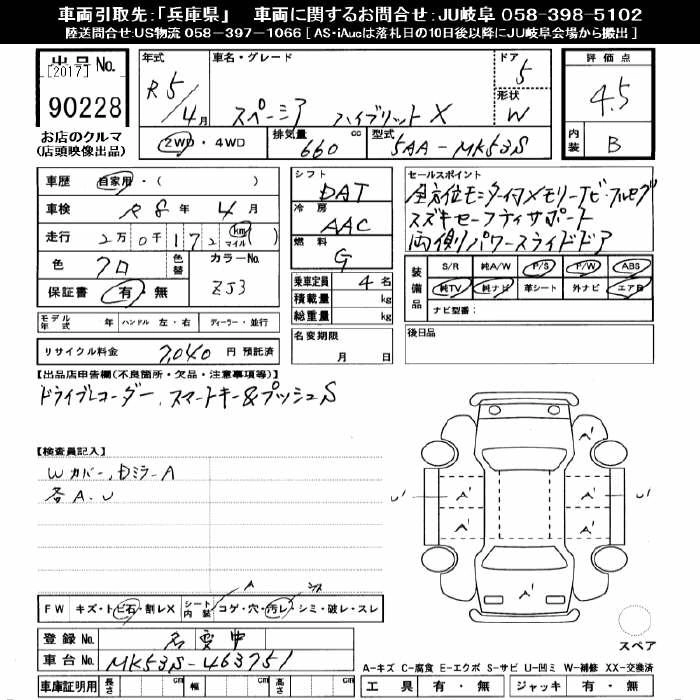 車両引取先:「兵庫県」 車両に関するお問合せ:JU岐阜 058-398-5102
陸送問合せ:US物流 058-397-1066 [ AS・iAucは落札日の10日後以降にJU岐阜会場から搬出 ]
出品No.
[2017]
90228
お店のクルマ
(店頭映像出品)
年式
R5/4月
車名・グレード
スペーシア ハイブリットX
ドア
5
形状
W
2WD・4WD
排気量
660 cc
型式
5AA-MK53S
評価点
4.5
内装
B
車歴 自家用・( )
車検 R8年4月
走行 2万0千172 km マイル ( )
色 クロ
色替
カラーNo.
ZJ3
保証書 有・無
モデル年式 年 ハンドル 左・右 ディーラー・並行
リサイクル料金 7,040 円 預託済
シフト
DAT
冷房
AAC
燃料
G
乗車定員 4名
積載量 kg
総重量 kg
名変期限
月 日
セールスポイント
全方位モニター付メモリーナビ・フルセグ
スズキセーフティサポート
両側パワースライドドア
装備品
S/R 純A/W P/S P/W ABS
純TV 純ナビ 革シート 外ナビ エアB
ナビ型番:
後日品
【出品店申告欄(不良箇所・欠品・注意事項等)】
ドライブレコーダー、スマートキー&プッシュS
【検査員記入】
Wカバー、DミラーA
各A.U
FW キズ・トビ石・割レX
シート内装
コゲ・穴・汚レ・シミ・破レ・スレ
A
登録No. 名変中
車台No. MK53S-463751
車庫証明用 長さ cm 幅 cm 高さ cm
A'
U'
A'
A'
U'
A'
A'
A'
A'
スペア
A-キズ C-腐食 E-エクボ S-サビ U-凹ミ W-補修 XX-交換済
工具 有・無 ジャッキ 有・無